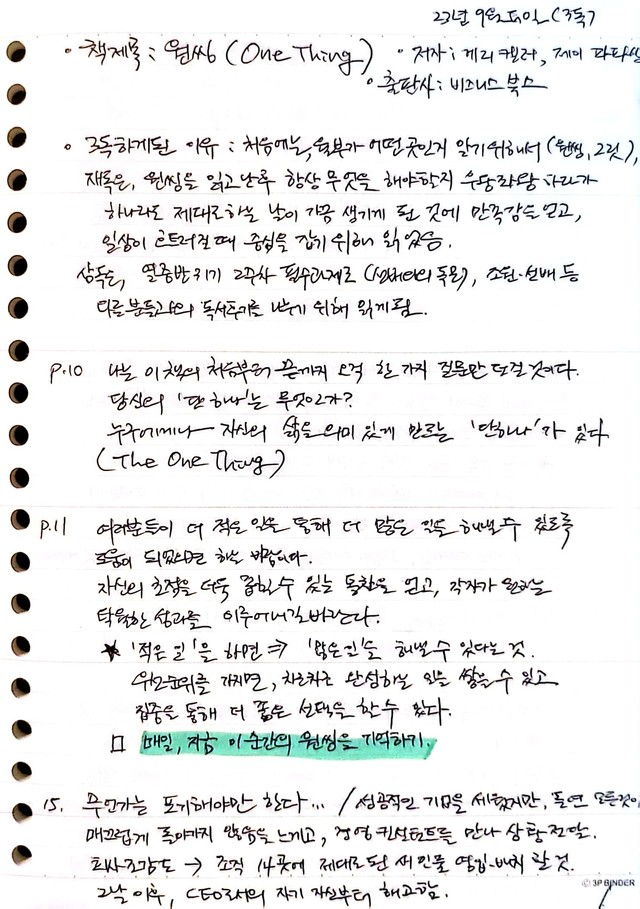 23년 9월 (3독)
• 책제목 : 원씽 (One Thing) • 저자 : 게리 켈러, 제이 파파산
• 출판사 : 비즈니스 북스
• 3독하게된 이유 : 처음에는, 월부가 어떤곳인지 알기위해서 (원씽, 그릿),
재독은, 원씽을 읽고난후 항상 무엇을 해야할지 하다가
하나라도 제대로하는 날이 가끔 생기게 된 것에 만족감을 얻고,
일상이 흐트러질때 중심을 잡기 위해 읽었음.
삼독은, 열중반 2주차 필수과제로 (선배와의 독모), 조원·선배 등
다른분들과의 독서후기를 나누기 위해 읽게됨.
p.10 나는 이 책의 처음부터 끝까지 오직 한 가지 질문만 던질 것이다.
당신의 '단 하나'는 무엇인가?
누구에게나 자신의 삶을 의미 있게 만드는 '단하나'가 있다
(The One Thing)
p.11 여러분들이 더 적은 일을 통해 더 많은 일을 해낼 수 있도록
도움이 되었으면 하는 바람이다.
자신의 초점을 더욱 좁힐 수 있는 통찰을 얻고, 각자가 원하는
탁월한 성과를 이루어내길바란다.
★ '적은 일'을 하면 ⇒ '많은일'을 해낼 수 있다는 것.
우선순위를 가지면, 차근차근 완성하는 일을 쌓을 수 있고
집중을 통해 더 좋은 선택을 할 수 있다.
□ 매일, 지금 이 순간의 원씽을 기억하기.
15. 무언가는 포기해야만 한다... / 성공적인 기업을 세웠지만, 돌연 모든것이
매끄럽게 돌아가지 않음을 느끼고, 경영 컨설턴트를 만나 상황 전달.
회사조감도 → 조직 14곳에 제대로된 새 인물 영입·배치 할 것.
그날 이후, CEO로서의 자기 자신부터 해고함.
© 3P BINDER